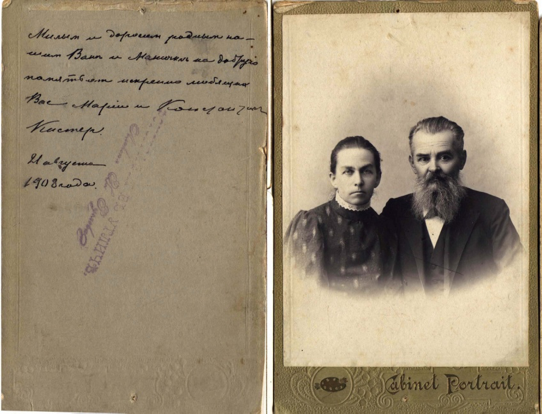 Милым и дорогим родным на-
шим Ване и Манички на добрую
память от искренно любящих
Вас Марии и Константина
Кистер.
21 августа
1903 года.
Cabinet Portrait.